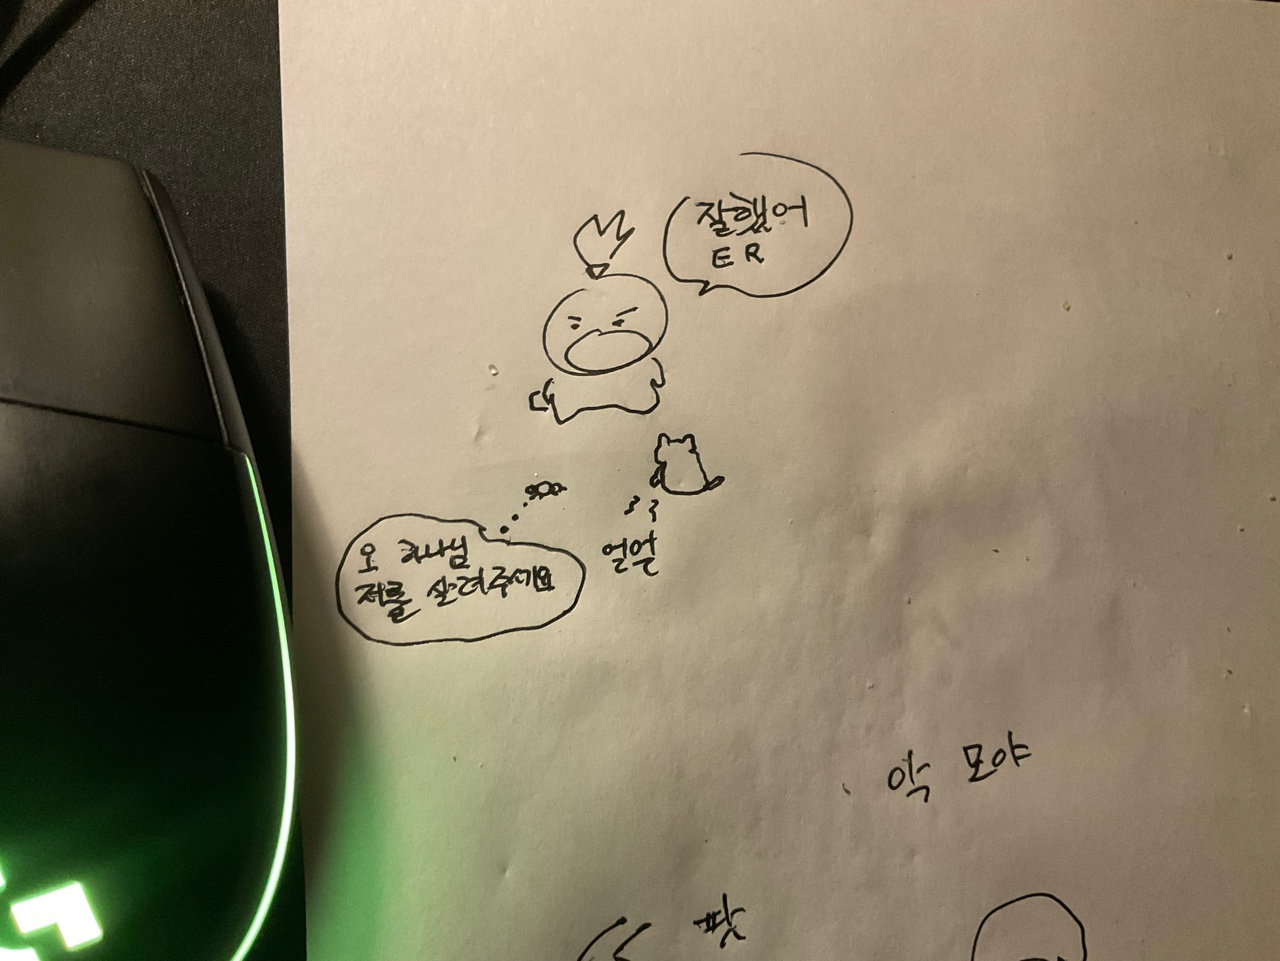 잘했어
ER
오 하나님
저를 살려주세요
얼얼
악 모야
팟